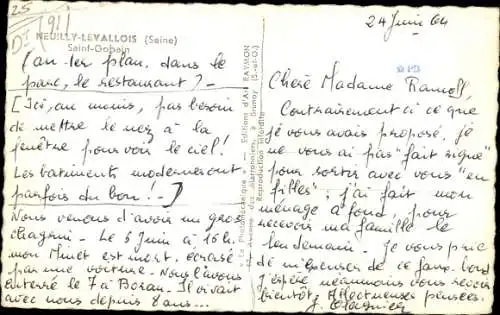 25
D 1911
NEUILLY-LEVALLOIS (Seine)
Saint-Gobain
(au 1er plan, dans le
parc, le restaurant) -
[Ici, au moins, pas besoin
de mettre le nez à la
fenêtre pour voir le ciel!
Les batiments modernes ont
parfois du bon! -]
Nous venons d'avoir un gros
chagrin - Le 5 Juin à 16h.
mon Minet est mort, écrasé
par une voiture - Nous l'avons
enterré le 7 à Boran - Il vivait
avec nous depuis 8 ans...
« Le Photostéréotypique » — Editions d'Art RAYMON
Marronniers, à Brunoy (S.-et-O.)
Reproduction interdite
24 Juin 64
Chère Madame
Contrairement à ce que
je vous avais proposé, je
ne vous ai pas "fait signe"
pour sortir avec vous "en
filles"; j'ai fait mon
ménage à fond, pour
recevoir ma famille le
lendemain. Je vous prie
de m'excuser de ce faux-bond
j'espère néanmoins vous revoir
bientôt, Affectueuses pensées.